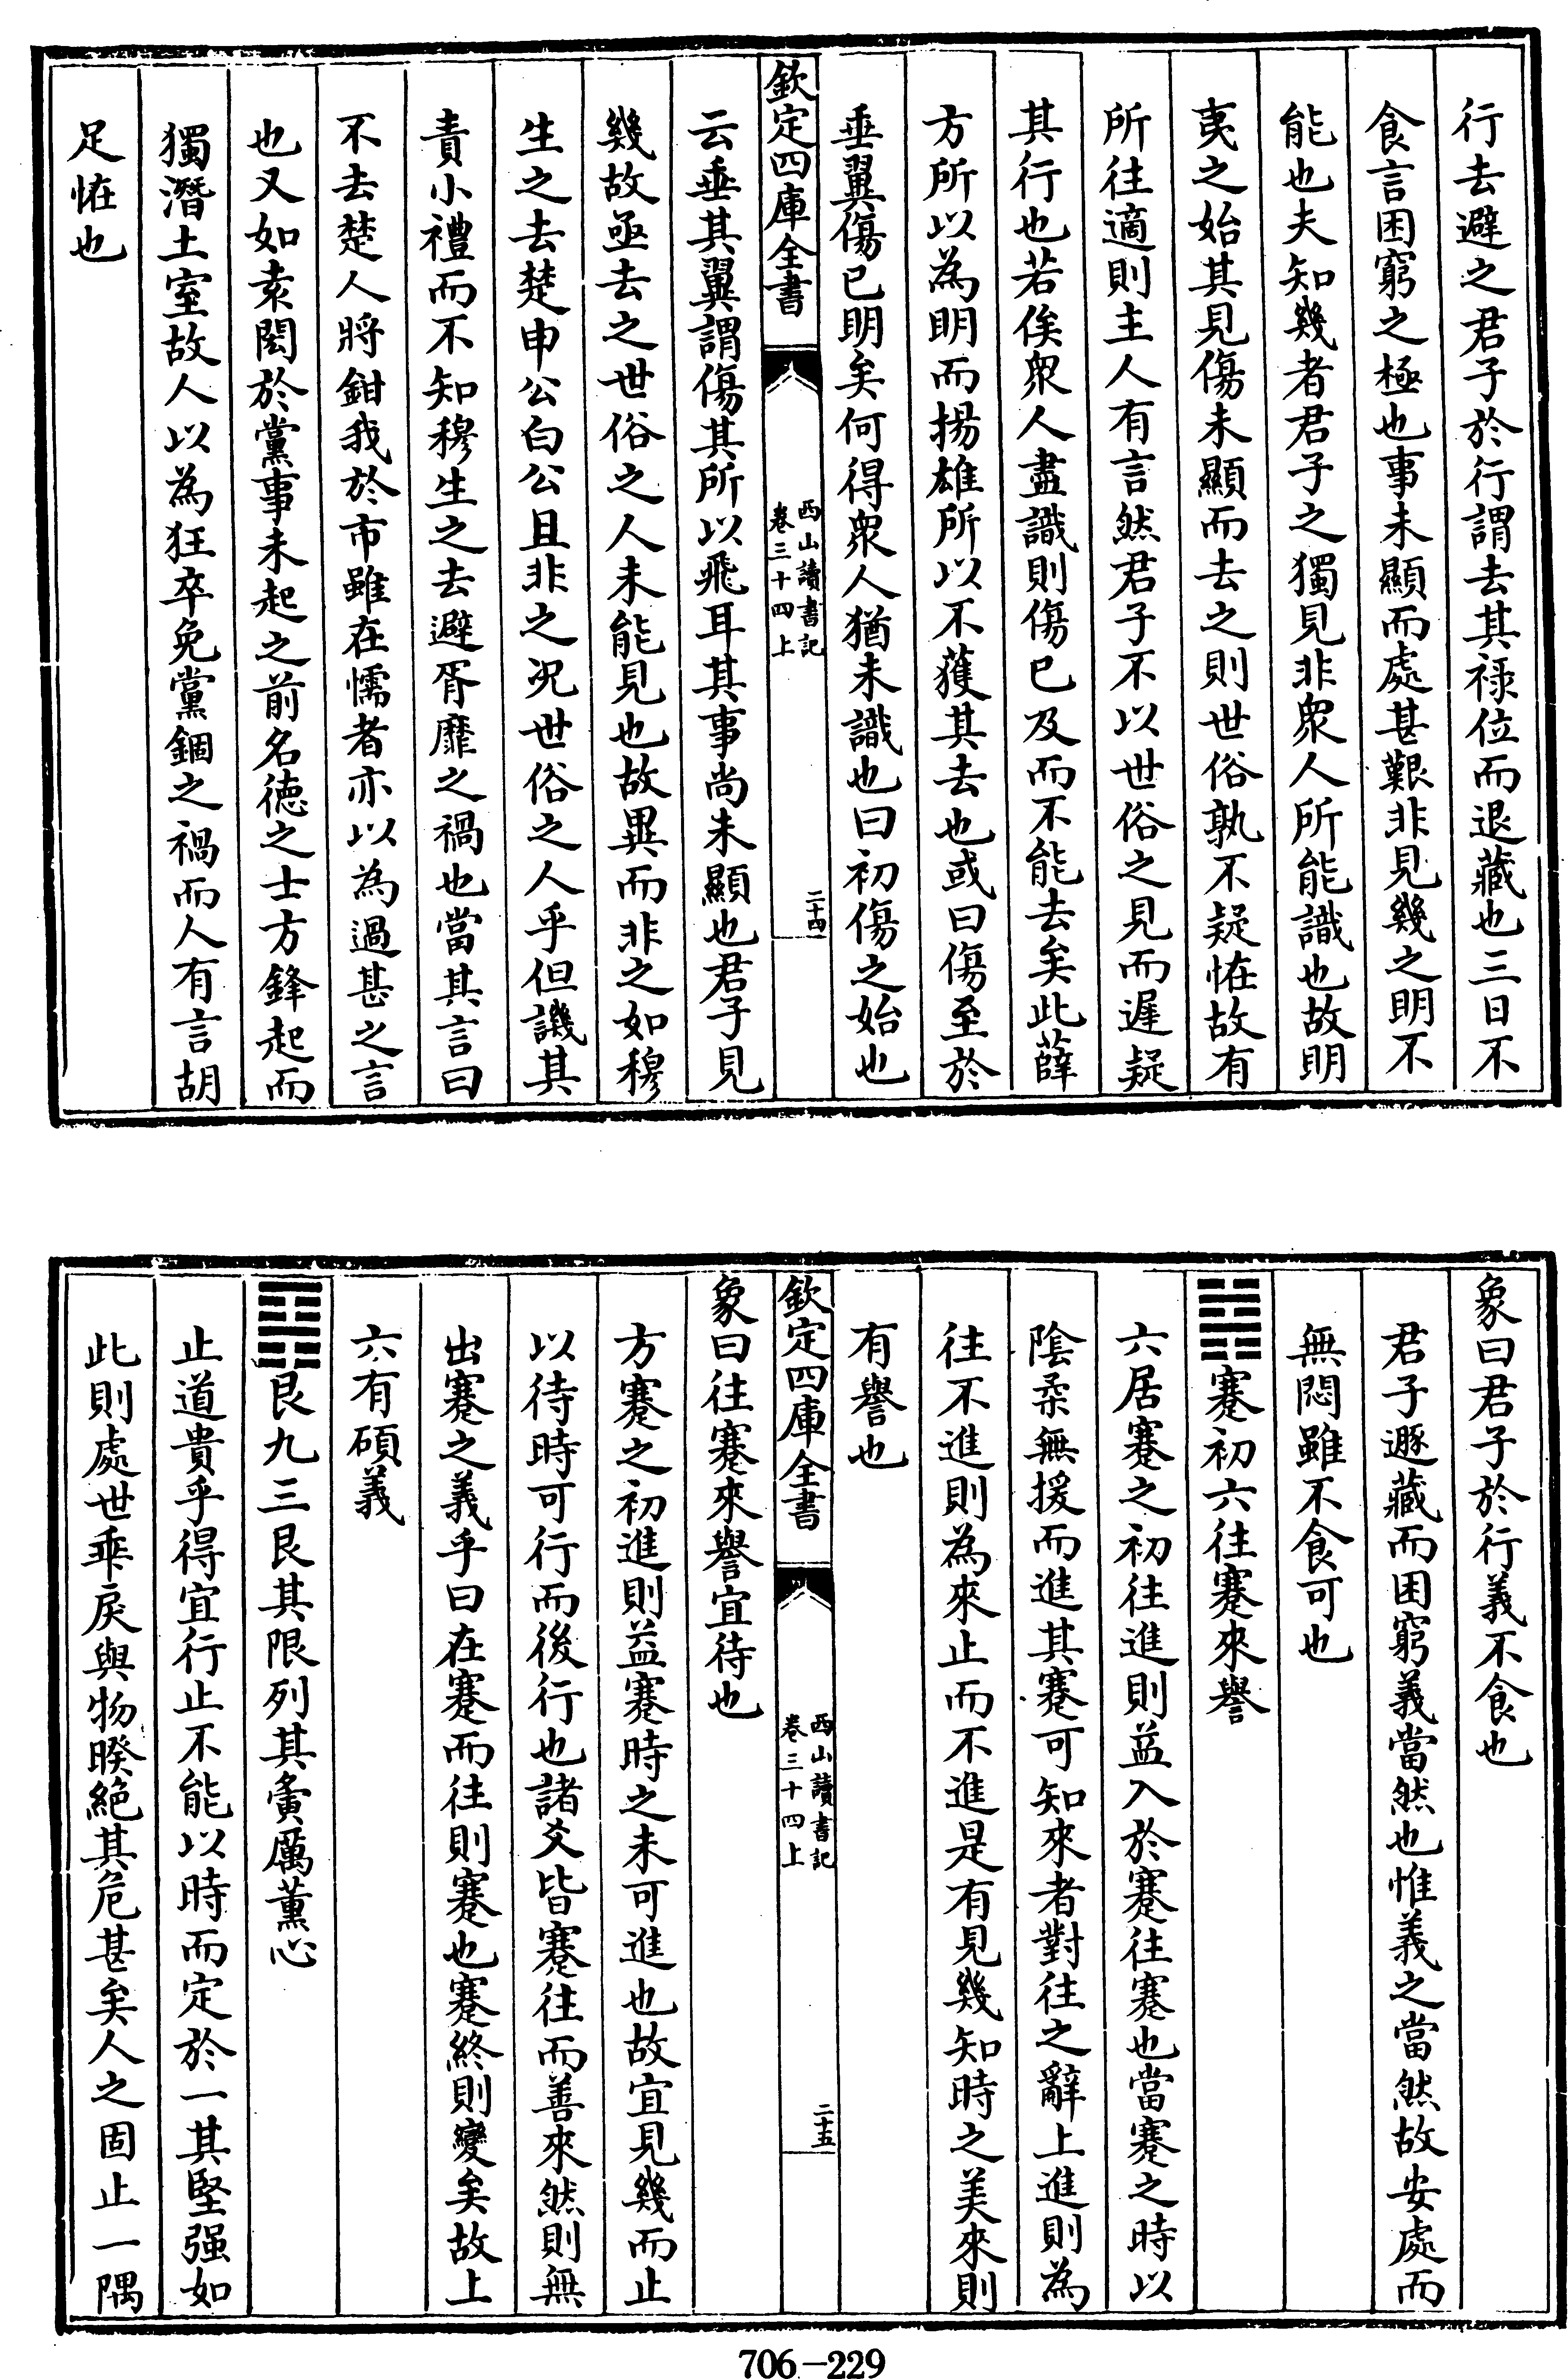 行去避之君子於行謂去其祿位而退藏也三日不
食言困窮之極也事未顯而處甚艱非見幾之明不
能也夫知幾者君子之獨見非衆人所能識也故明
夷之始其見傷未顯而去之則世俗孰不疑怪故有
所往適則主人有言然君子不以世俗之見而遲疑
其行也若俟衆人盡識則傷已及而不能去矣此薛
方所以為明而揚雄所以不獲其去也或曰傷至於
垂翼傷已明矣何得衆人猶未識也曰初傷之始也
欽定四庫全書
西山讀書記
卷三十四上
二十四
云垂其翼謂傷其所以飛耳其事尚未顯也君子見
幾故亟去之世俗之人未能見也故異而非之如穆
生之去楚申公白公且非之况世俗之人乎但譏其
責小禮而不知穆生之去避胥靡之禍也當其言曰
不去楚人將鉗我於市雖在懦者亦以為過甚之言
也又如袁閎於黨事未起之前名徳之士方鋒起而
獨潛土室故人以為狂卒免黨錮之禍而人有言胡
足恠也
象曰君子於行義不食也
君子遯藏而困窮義當然也惟義之當然故安處而
無悶雖不食可也
䷦蹇初六往蹇來譽
六居蹇之初往進則益入於蹇往蹇也當蹇之時以
陰柔無援而進其蹇可知來者對往之辭上進則為
往不進則為來止而不進是有見幾知時之美來則
有譽也
欽定四庫全書
西山讀書記
卷三十四上
二十五
象曰往蹇來譽宜待也
方蹇之初進則益蹇時之未可進也故宜見幾而止
以待時可行而後行也諸爻皆蹇往而善來然則無
出蹇之義乎曰在蹇而往則蹇也蹇終則變矣故上
六有碩義
䷳艮九三艮其限列其夤厲薰心
止道貴乎得宜行止不能以時而定於一其堅强如
此則處世乖戾與物睽絕其危甚矣人之固止一隅
706-229